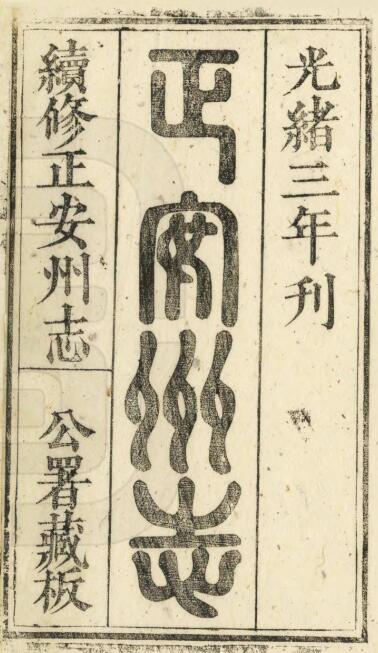 光緒三年刊
正安州志
續修正安州志
公署藏板